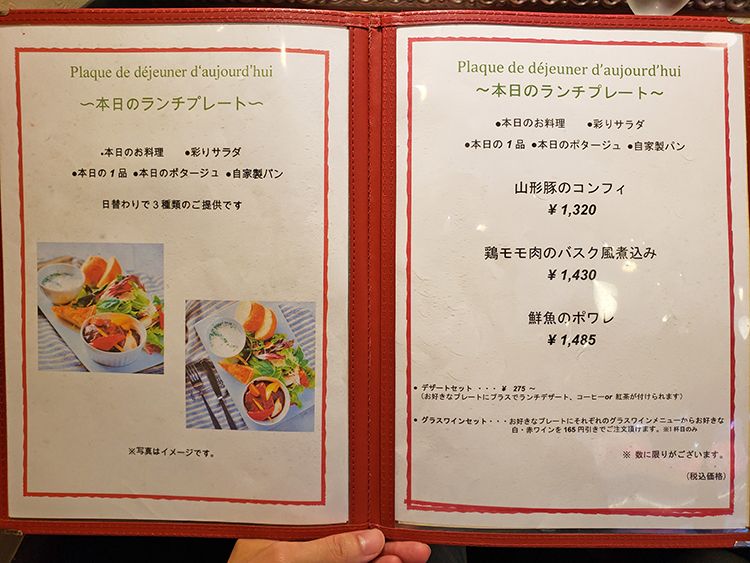 Plaque de déjeuner d'aujourd'hui
～本日のランチプレート～
•本日のお料理 ●彩りサラダ
●本日の１品 ●本日のポタージュ ●自家製パン
日替わりで３種類のご提供です
※写真はイメージです。
Plaque de déjeuner d'aujourd'hui
～本日のランチプレート～
●本日のお料理 ●彩りサラダ
●本日の１品 ●本日のポタージュ ●自家製パン
山形豚のコンフィ
¥ 1,320
鶏モモ肉のバスク風煮込み
¥ 1,430
鮮魚のポワレ
¥ 1,485
● デザートセット ・・・ ¥ 275 ～
（お好きなプレートにプラスでランチデザート、コーヒーor 紅茶が付けられます）
● グラスワインセット・・・お好きなプレートにそれぞれのグラスワインメニューからお好きな
白・赤ワインを 165 円引きでご注文頂けます。※１杯目のみ
※ 数に限りがございます。
（税込価格）